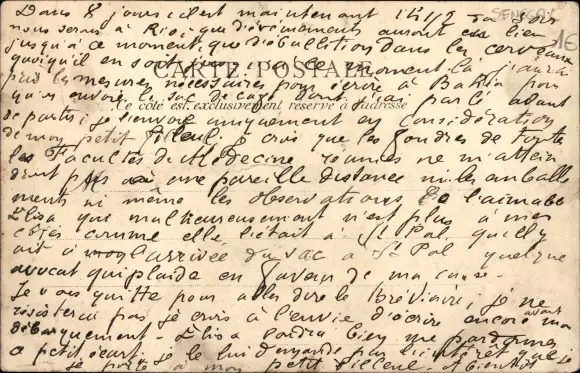 Dans 8 jours il est maintenant 1h 1/2 du soir
SENEGAL
16
nous serons à Rio; que d'événements auront eu lieu
jusqu'à ce moment, que d'ébullition dans les cerveaux
quoiqu'il en soit jusqu'à ce moment là j'aurai
CARTE POSTALE
pris les mesures nécessaires pour écrire à Bahia pour
qu'on envoie le sac dont j'ai parlé avant
Ce côté est exclusivement réservé à l'adresse
de partir; je l'envoie uniquement en considération
de mon petit filleul; je crois que les foudres de toutes
les Facultés de Médecine réunies ne m'attein
dront pas à une pareille distance ni les emballe
ments ni même les observations de l'aimable
Elisa qui malheureusement n'est plus à mes
côtés comme elle l'était à St Pol, qu'il y
ait à l'arrivée du sac à St Pol quelque
avocat qui plaide en faveur de ma cause.
Je vous quitte pour aller dire le Bréviaire, je ne
résisterai pas je crois à l'envie d'écrire encore avant mon
débarquement - Elisa voudra bien me pardonner
ce petit écart; je le lui demande par l'intérêt que je
je porte à mon petit filleul. A bientôt